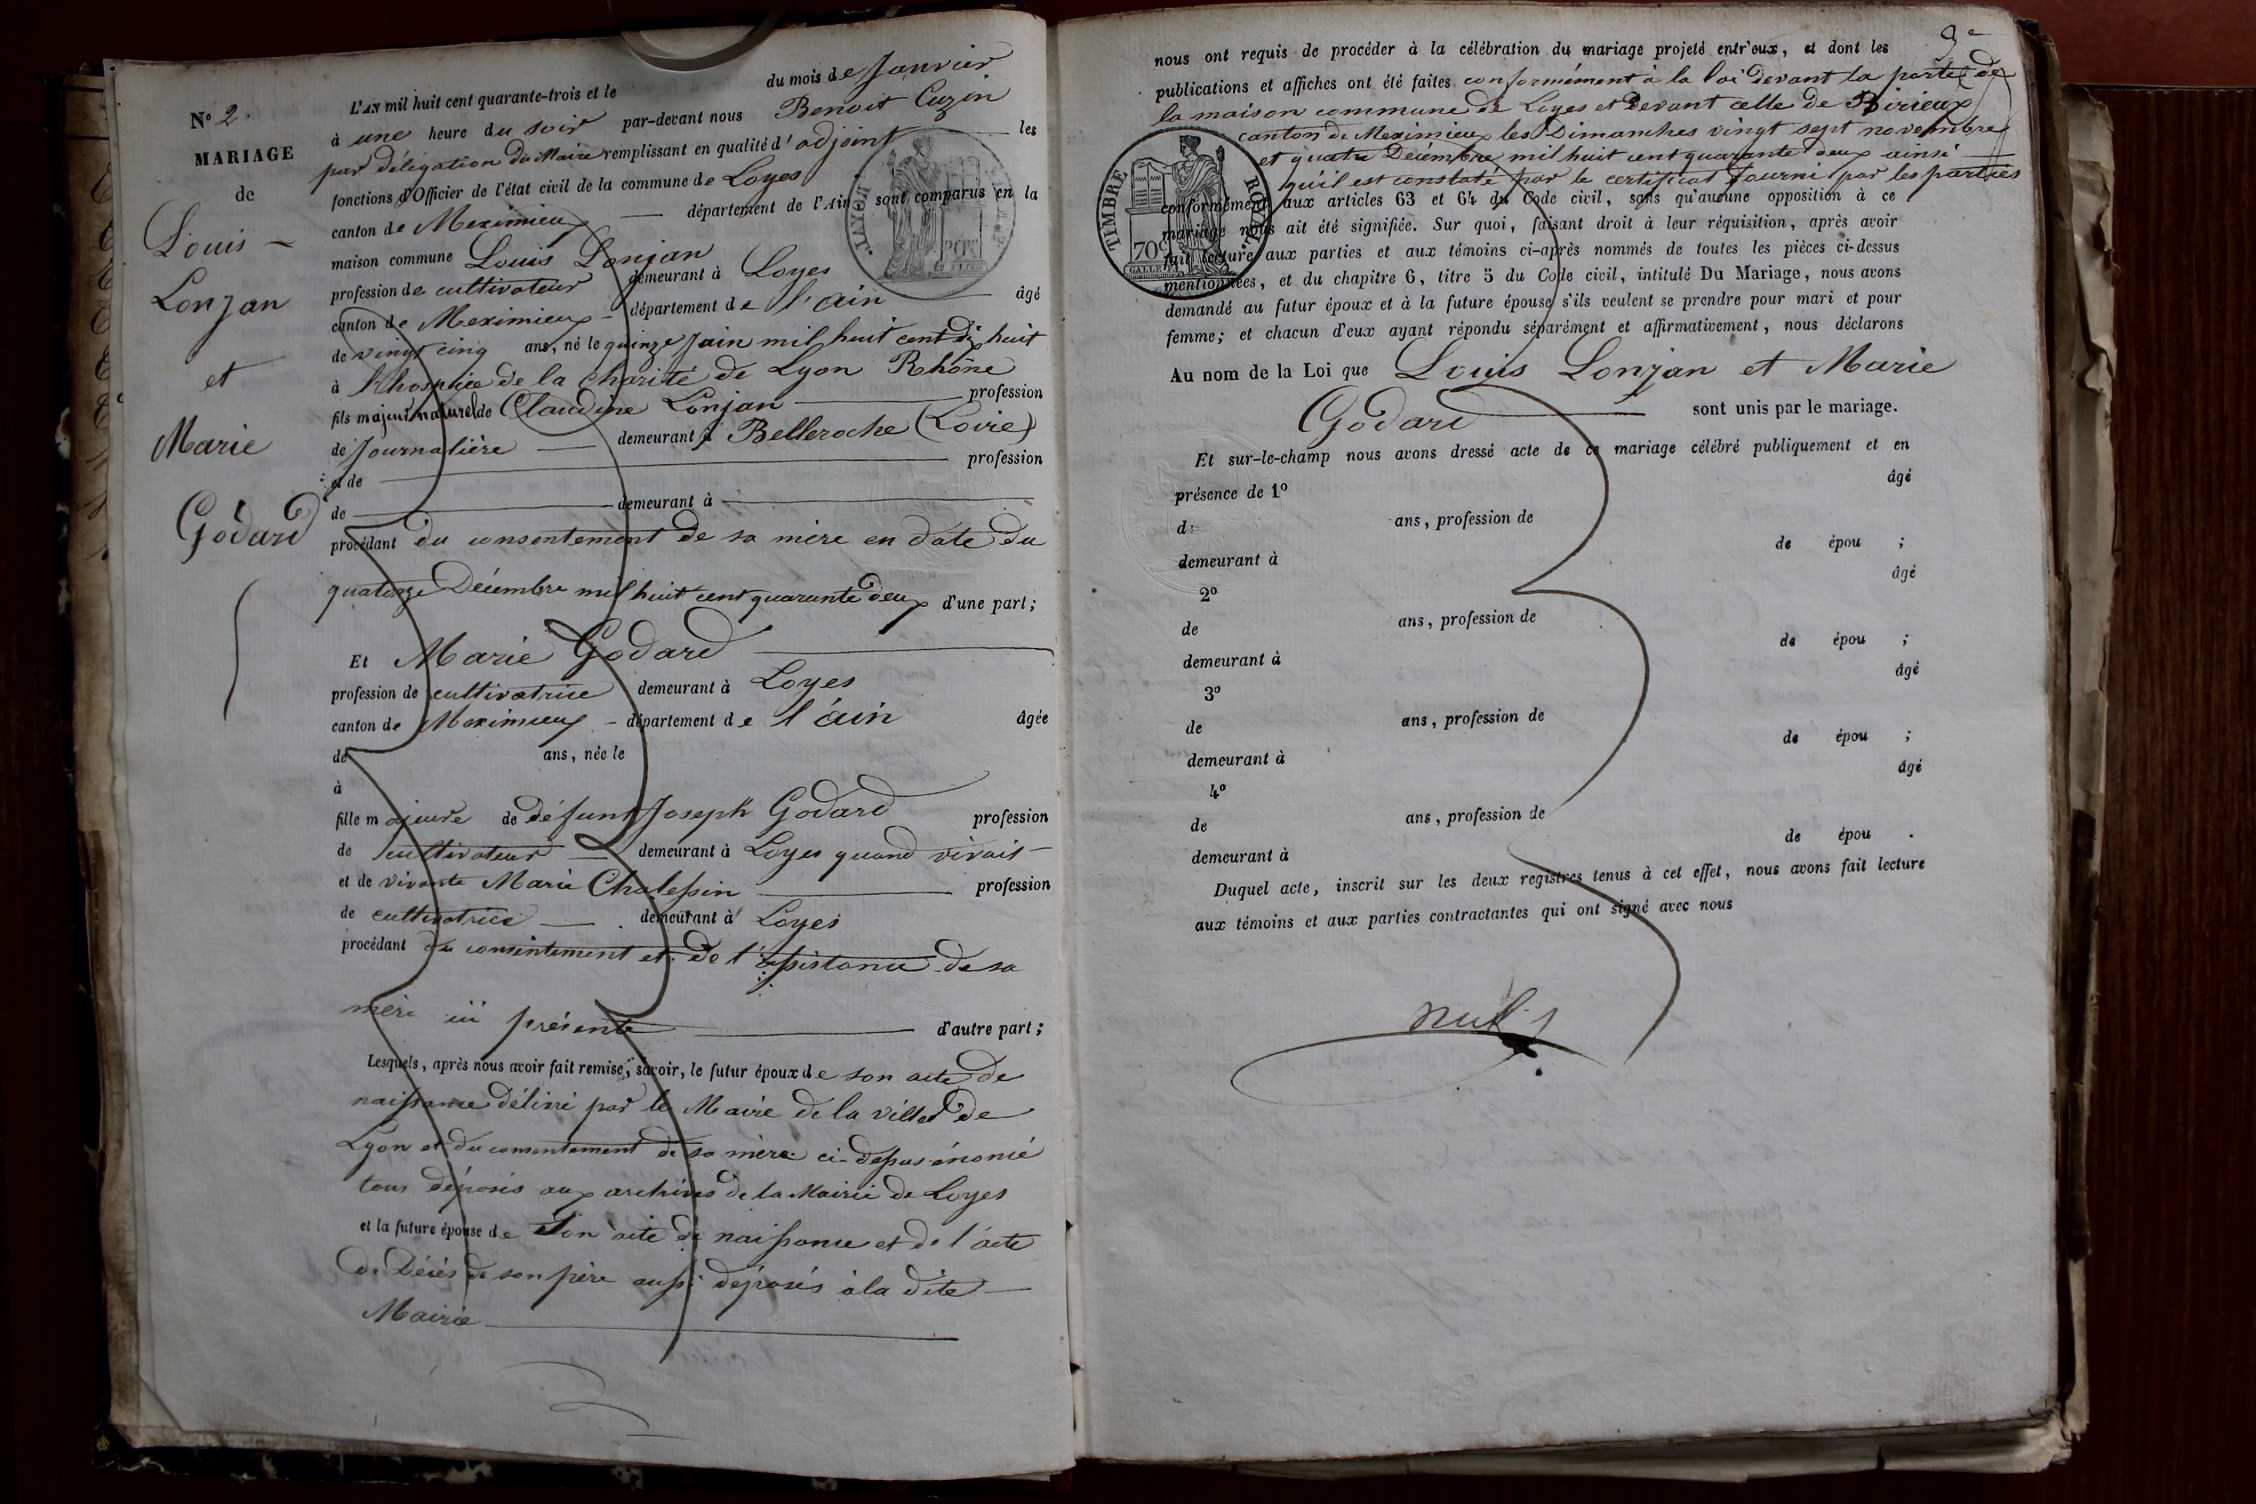 No 2.
MARIAGE
de
Louis
Lonjan
et
Marie
Godard
L'AN mil huit cent quarante-trois et le du mois de Janvier
à une heure du soir par-devant nous Benoit Cuzin
par déligation du Maire remplissant en qualité d'adjoint les
fonctions d'Officier de l'état civil de la commune de Loyes
canton de Meximieux département de l'Ain sont comparus en la
maison commune Louis Lonjan
profession de cultivateur demeurant à Loyes
canton de Meximieux département de l'ain âgé
de vingt cinq ans, né le quinze Juin mil huit cent dix huit
à l'hospice de la Charité de Lyon Rhône
fils majeur naturel de Claudine Lonjan profession
de Journalière demeurant à Belleroche (Loire)
et de profession
de demeurant à
procédant du consentement de sa mère en date du
quatorze Décembre mil huit cent quarante deux d'une part;
Et Marie Godard
profession de cultivatrice demeurant à Loyes
canton de Meximieux département de l'ain âgée
de ans, née le
à
fille majeure de défunt Joseph Godard profession
de cultivateur demeurant à Loyes quand vivait
et de vivante Marie Chalessin profession
de cultivatrice demeurant à Loyes
procédant du consentement et de l'assistance de sa
mère ici présente d'autre part;
Lesquels, après nous avoir fait remise, savoir, le futur époux de son acte de
naissance délivré par le Maire de la ville de
Lyon et du consentement de sa mère ci-dessus énoncé
tous déposés aux archives de la Mairie de Loyes
et la future épouse de son acte de naissance et de l'acte
de Décès de son père aussi déposés à la dite
Mairie
3e
nous ont requis de procéder à la célébration du mariage projeté entr'eux, et dont les
publications et affiches ont été faites conformément à la loi devant la porte de
la maison commune de Loyes et devant celle de Birieux
canton de Meximieux les Dimanches vingt sept novembre
et quatre Décembre mil huit cent quarante deux ainsi
qu'il est constaté par le certificat fourni par les parties
TIMBRE ROYAL
70c
conformément aux articles 63 et 64 du Code civil, sans qu'aucune opposition à ce
mariage nous ait été signifiée. Sur quoi, faisant droit à leur réquisition, après avoir
fait lecture aux parties et aux témoins ci-après nommés de toutes les pièces ci-dessus
mentionnées, et du chapitre 6, titre 5 du Code civil, intitulé Du Mariage, nous avons
demandé au futur époux et à la future épouse s'ils veulent se prendre pour mari et pour
femme; et chacun d'eux ayant répondu séparément et affirmativement, nous déclarons
Au nom de la Loi que Louis Lonjan et Marie
Godard sont unis par le mariage.
Et sur-le-champ nous avons dressé acte de ce mariage célébré publiquement et en
présence de 1o âgé
de ans, profession de
demeurant à de épou ;
2o âgé
de ans, profession de
demeurant à de épou ;
3o âgé
de ans, profession de
demeurant à de épou ;
4o âgé
de ans, profession de
demeurant à de épou .
Duquel acte, inscrit sur les deux registres tenus à cet effet, nous avons fait lecture
aux témoins et aux parties contractantes qui ont signé avec nous